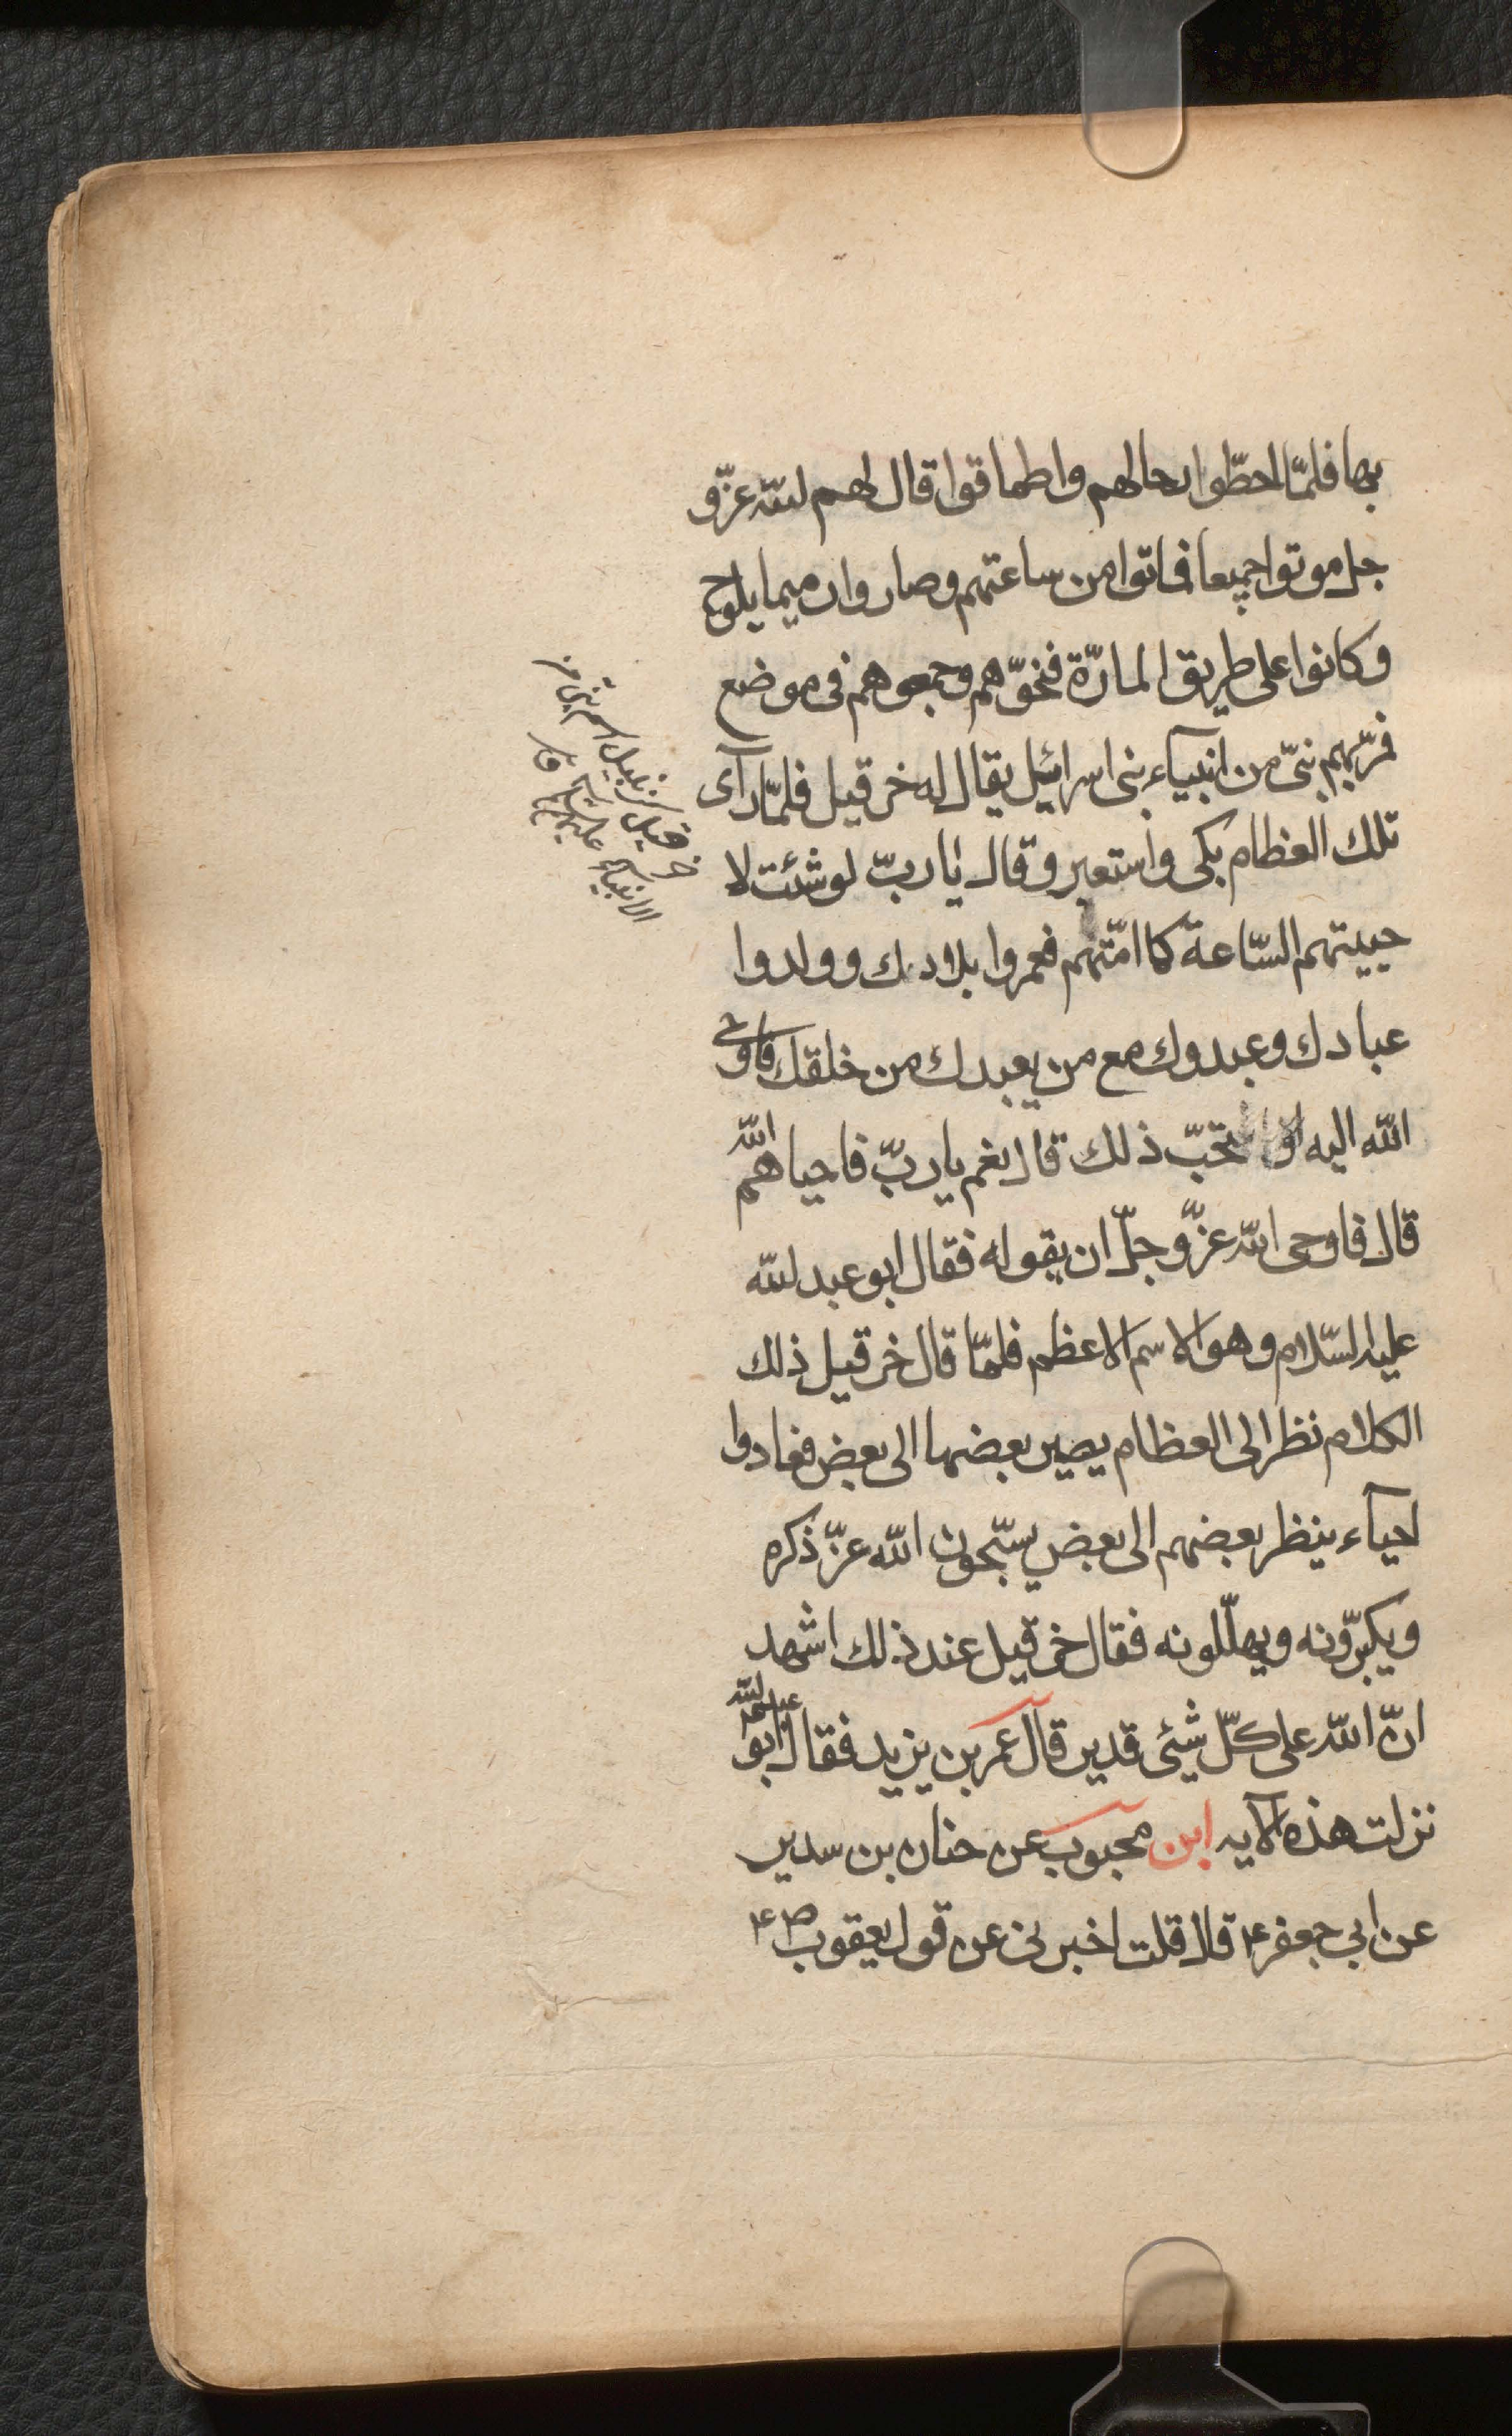 بها فلمّا احطّوا رحالهم واطماقوا قال لهم لله عزّ و
جل موتوا جميعا فماتوا من ساعتهم وصاروا رميما يلوح
وكانوا على طريق المارّة فنحّوهم وجمعوهم فى موضع
فمرّ بهم نبىّ من انبيآء بنى اسرائيل يقال له خرقيل فلمّا رآى
تلك العظام بكى واستعبر وقال يا ربّ لو شئت لا
حييتهم السّاعة كما امّتهم فعمروا بلادك وولدوا
عبادك وعبدوك مع من يعبدك من خلقك فاوحى
الله اليه افتحبّ ذلك قال نعم يا ربّ فاحياهم الله
قال فاوحى الله عزّ وجلّ ان يقوله فقال ابو عبد لله
عليه السّلام وهو الاسم الاعظم فلمّا قال خرقيل ذلك
الكلام نظر الى العظام يصير بعضها الى بعض فعادوا
احيآء ينظر بعضهم الى بعض يسبّحون الله عزّ ذكره
ويكبّرونه ويهلّلونه فقال خرقيل عند ذلك اشهد
انّ الله على كلّ شيئ قدير قال عمر بن يزيد فقال ابو عبد لله
نزلت هذه الآيه ابن محبوب عن حنان بن سدير
عن ابي جعفر ع قال قلت اخبرنى عن قول يعقوب ص ع
خرقيل كزنبيل اسم نبىّ من
الانبيآء عليهم